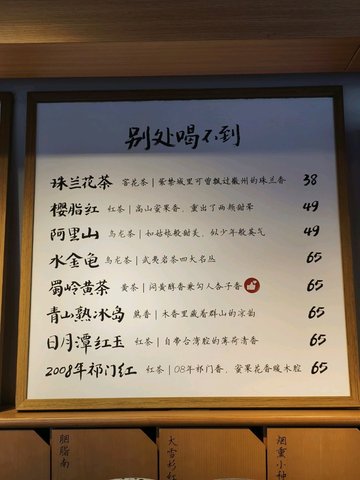 别处喝不到
珠兰花茶 窨花茶 | 紫禁城里可曾飘过徽州的珠兰香 38
樱脂红 红茶 | 高山蜜果香，熏出了两颊甜晕 49
阿里山 乌龙茶 | 如姑娘般甜美，似少年般英气 49
水金龟 乌龙茶 | 武夷岩茶四大名丛 65
蜀岭黄茶 黄茶 | 闷黄醇香兼勾人杏子香 65
青山熟冰岛 熟普 | 木香里藏着群山的凉韵 65
日月潭红玉 红茶 | 自带台湾腔的薄荷清香 65
2008年祁门红 红茶 | 08年祁门香，蜜果花香暖木腔 65
胭脂南
大雪杉红
烟熏小种